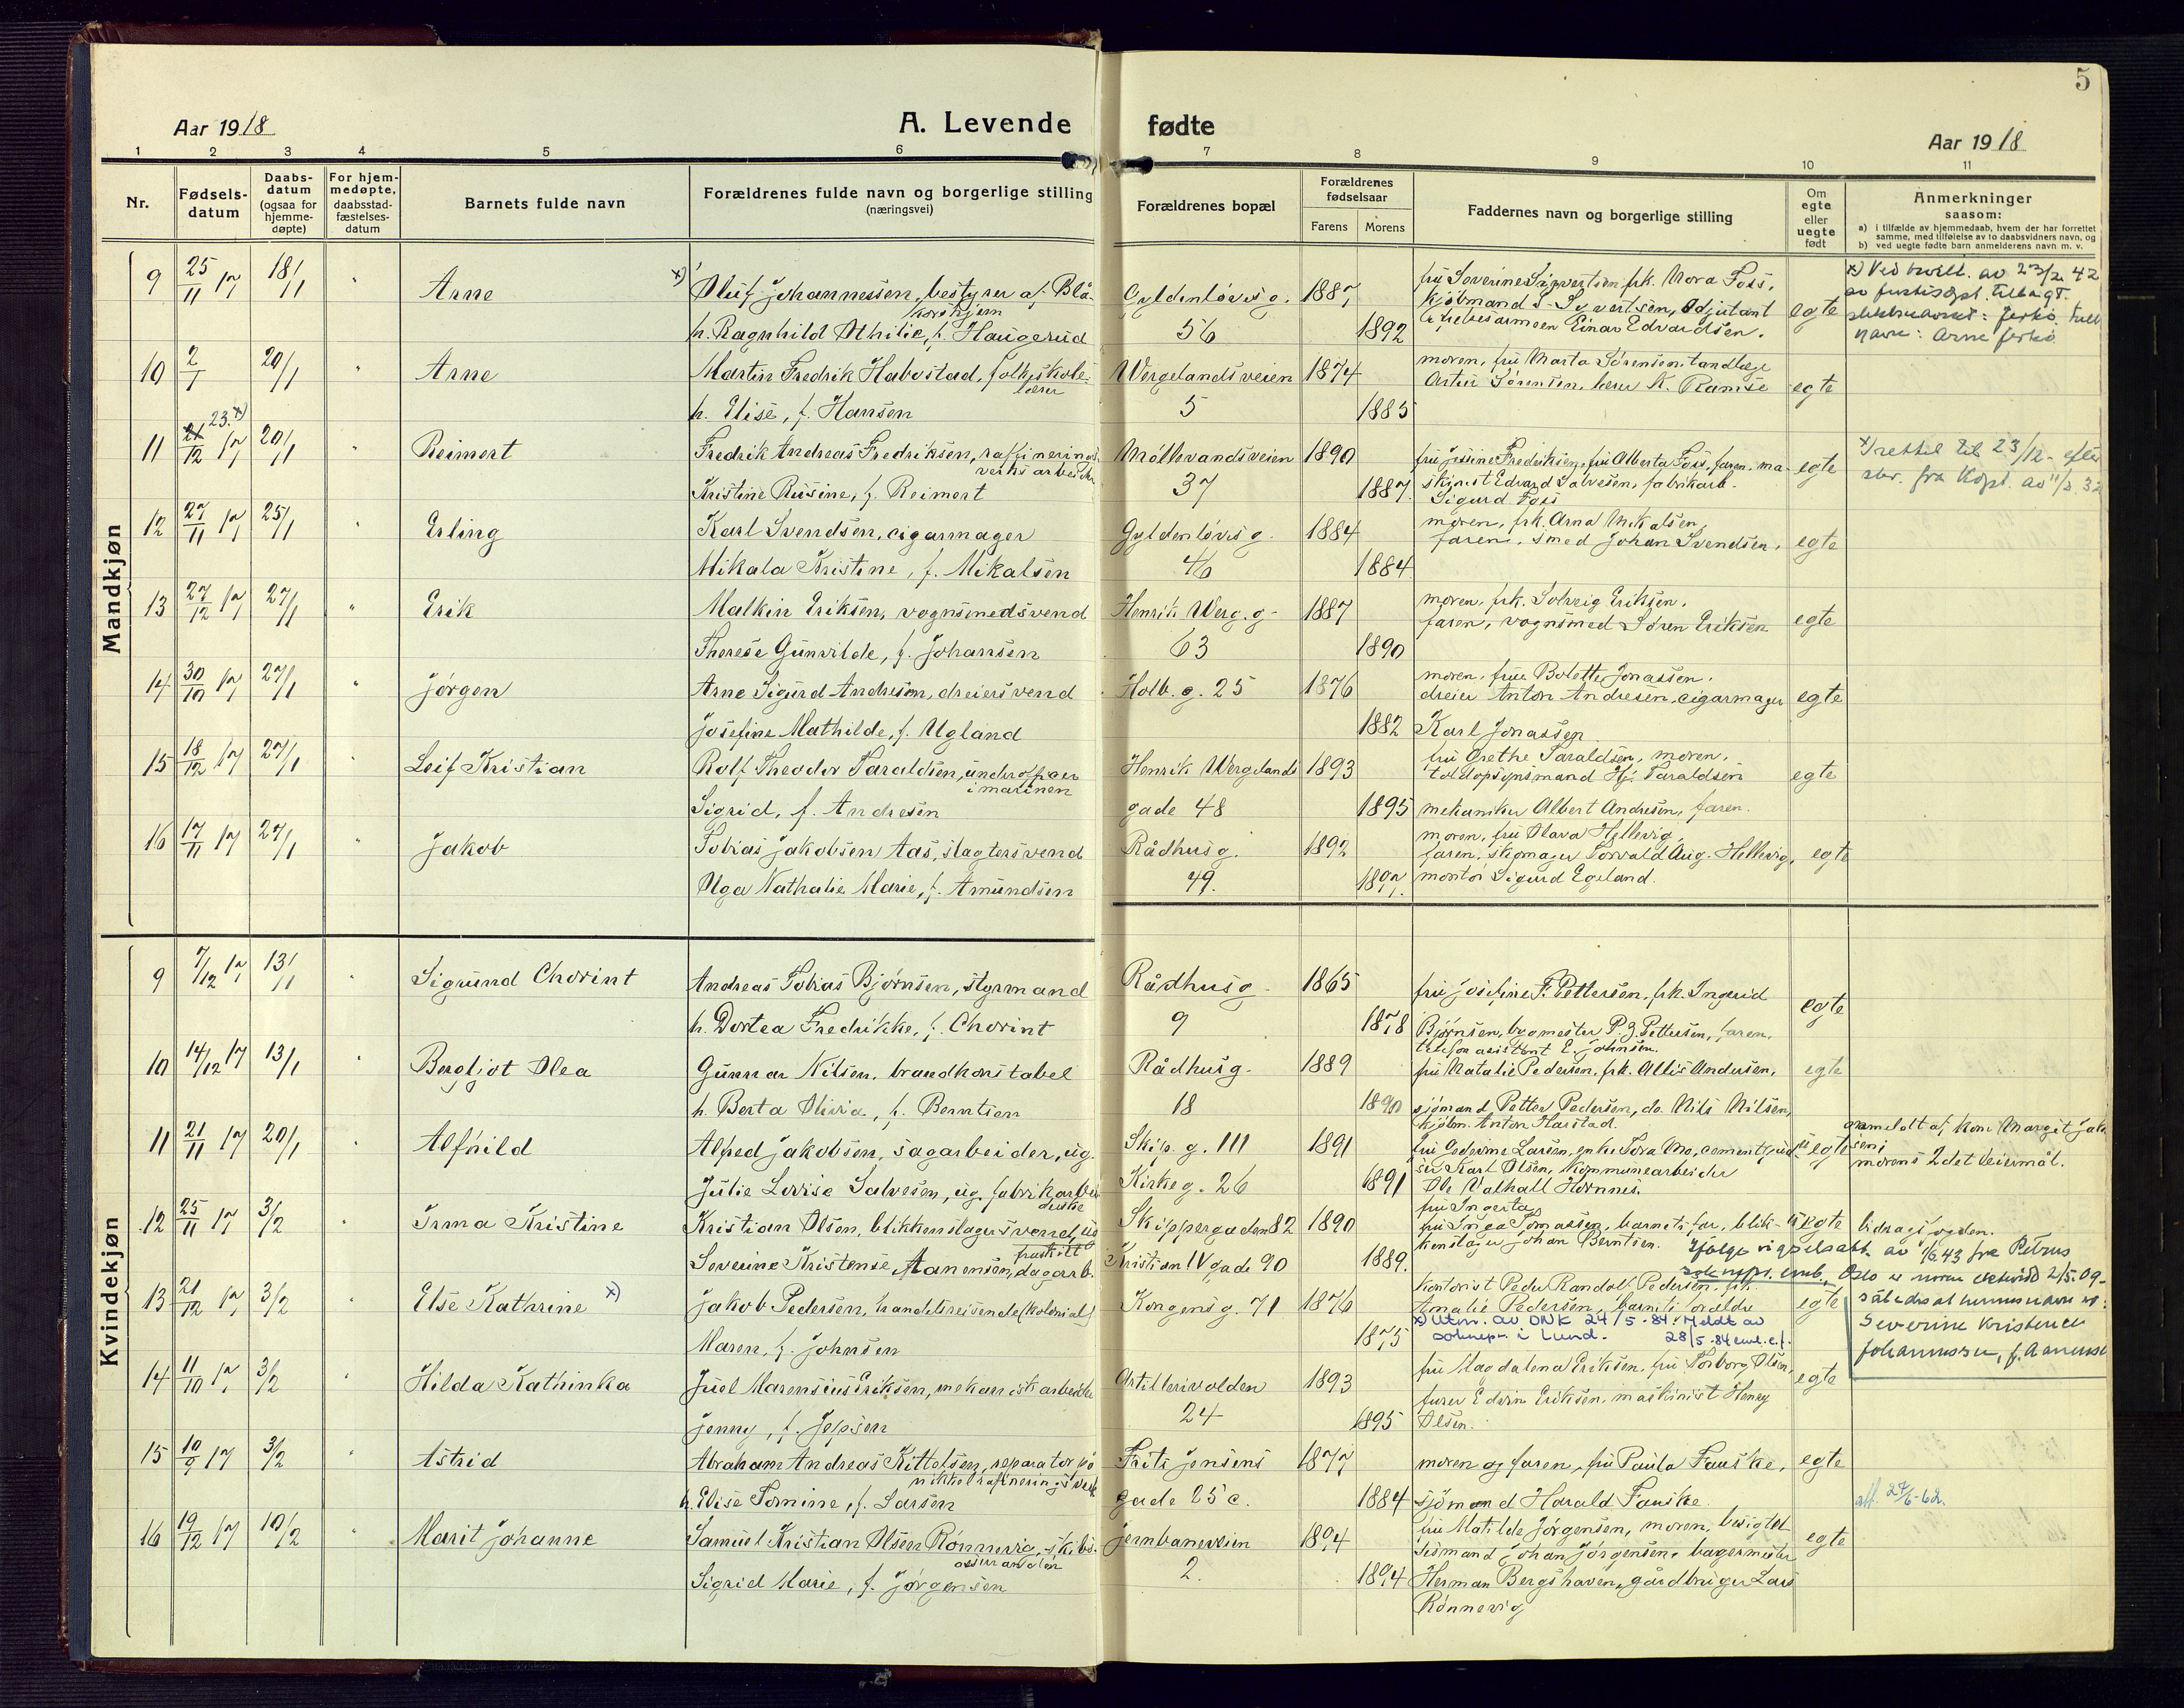 5
Aar 1918
A. Levende
fødte
Aar 1918
1 2 3 4 5 6 7 8 9 10 11
Nr.
Fødsels-
datum
Daabs-
datum
(ogsaa for
hjemme-
døpte)
For hjem-
medøpte,
daabsstad-
fæstelses-
datum
Barnets fulde navn
Forældrenes fulde navn og borgerlige stilling
(næringsvei)
Forældrenes bopæl
Forældrenes
fødselsaar
Farens Morens
Faddernes navn og borgerlige stilling
Om
egte
eller
uegte
født
Anmerkninger
saasom:
a) i tilfælde av hjemmedaab, hvem der har forrettet
samme, med tilføielse av to daabsvidners navn, og
b) ved uegte fødte barn anmelderens navn m. v.
Mandkjøn
9 25/11 17 18/1 " Arne x) Oluf Johannessen, bestyrer af Blå-
korshjem
h. Ragnhild Othilie, f. Haugerud
Gyldenløves g. 1887
56 1892
fru Severine Sigvertsen, frk. Nora Foss,
kjøbmand S. Syvertsen, Adjutant
Einar Edvardsen.
egte
x) Ved bevill. av 23/2 42
av justisdpt. tilbagt.
: Jerkø. Full
navn: Arne Jerkø.
10 2/1 20/1 " Arne Martin Fredrik Habostad, folkeskole-
lærer
h. Elise, f. Hansen
Wergelandsveien 1874
5 1885
moren, fru Marta Sørensen, tandlæge
Artur Sørensen, lærer K. Ramse
egte
11 21/12 17 23. x) 20/1 " Reimert Fredrik Andreas Fredriksen, raffinerings-
verks arbeider
Kristine Rusine, f. Reimert
Møllevandsveien 1890
37 1887.
fru Jessine Fredriksen, fru Alberta Foss, faren, ma-
skinist Edvard Salvesen, fabrikarb.
Sigurd Foss
egte
x) rettet til 23/12 - efter
skr. fra Kdpt. av 11/2. 32
12 27/11 17 25/1 " Erling Karl Svendsen, cigarmager
Mikala Kristine, f. Mikalsen
Gyldenløves g. 1884
46 1884
moren, frk. Arna Mikalsen,
faren, smed Johan Svendsen,
egte
13 27/12 17 27/1 " Erik Malkin Eriksen, vognsmedsvend
Therese Gunvilde, f. Johansen
Henrik Werg. g. 1887
63 1890
moren, frk. Solveig Eriksen,
faren, vognsmed Søren Eriksen
egte
14 30/10 17 27/1 " Jørgen Arne Sigurd Andresen, dreiersvend
Josefine Mathilde, f. Ugland
Holb. g. 25 1876
1882
moren, frue Bolette Jonassen,
dreier Anton Andresen, cigarmager
Karl Jonassen.
egte
15 18/12 17 27/1 " Leif Kristian Rolf Theodor Taraldsen, underofficer
i marinen
Sigrid, f. Andresen
Henrik Wergelands 1893
gade 48 1895
fru Grethe Taraldsen, moren,
toldopsynsmand Hj. Taraldsen
mekaniker Albert Andresen, faren.
egte
16 17/11 17 27/1 " Jakob Tobias Jakobsen Aas, slagtersvend
Olga Nathalie Marie, f. Amundsen
Rådhusg. 1892
49. 1897.
moren, fru Olava Hellevig,
faren, skomager Torvald Aug. Hellevig,
montør Sigurd Egeland.
egte
Kvindekjøn
9 7/12 17 13/1 " Sigrund Chorint Andreas Tobias Bjørnsen, styrmand
h. Dortea Fredrikke, f. Chorint
Rådhusg. 1865
9 1878
fru Josefine F. Pettersen, frk. Ingerid
Bjørnsen, bygmester P. J. Pettersen, faren,
telefonasistent E. Johnsen.
egte
10 14/12 17 13/1 " Bergljot Olea Gunnar Nilsen, brandkonstabel
h. Berta Olivia, f. Berntsen
Rådhusg. 1889
18 1890
fru Natalie Pedersen, frk. Allis Andersen,
sjømand Petter Pedersen, do. Nils Nilsen,
kjøbm. Anton Harstad.
egte
11 21/11 17 20/1 " Alfhild Alfred Jakobsen, sagarbeider, ug.
Julie Lovise Salvesen, ug. fabrikarbei-
derske
Skip. g. 111 1891
Kirkeg. 26 1891
fru Gederine Larsen, enke Tora Mo, cementstø-
ber Karl Olsen, kommunearbeider
Ole Valhall Hornnes.
uegte
anmeldt af kone Margit Jak-
sen;
morens 2det leiermål.
12 25/11 17 3/2 " Irma Kristine Kristian Olsen, blikkenslagersvend, ug
fraskilt
Severine Kristense Aanensen, dagarb.
Skippergaden 82 1890
Kristian IV gade 90 1889.
fru Ingerta
fru Inga Tomassen, barnets far, blik-
kenslager Johan Berntsen.
uegte
bidragsfogden.
Ifølge vigselsatt. av 1/6 43 fra Petrus
sokneprs. emb., Oslo er moren 2/5.09-
således at hennes navn er:
Severine Kristence
Johannessen, f. Aanensen
13 21/12 17 3/2 " Else Kathrine x) Jakob Pedersen, handelsreisende (kolonial)
Maren, f. Johnsen
Kongensg. 71 1876
1875
kontorist Peder Randolf Pedersen, frk.
Amalie Pedersen, barnets forældre
x) Utm. av DNK 24/5 - 84. Meldt av
soknepr. i Lund. 28/5 - 84 emb. c.f.
egte
14 11/10 17 3/2 " Hilda Kathinka Juel Marensius Eriksen, mekanisk arbeider
Jenny, f. Jepsen
Artillerivolden 1893
24 1895
fru Magdalena Eriksen, fru Torborg Olsen,
furer Edvin Eriksen, maskinist Henry
Olsen.
egte
15 10/9 17 3/2 " Astrid Abraham Andreas Kittelsen, reparatør på
nikkelrafineringsverk
h. Elise Tomine, f. Larsen
Frits Jensens 1877
gade 25 c. 1884
moren og faren, fru Paula Fauske,
sjömand Harald Fauske.
egte
att. 27/6-62.
16 19/12 17 10/2 " Marit Johanne Samuel Kristian Olsen Rønnevig, skibs-
assurandør
Sigrid Marie, f. Jørgensen
Jernbaneveien 1894
2. 1894
fru Matilde Jørgensen, moren, besigtel
sesmand Johan Jørgensen, bagermester
Herman Bergshaven, gårdbruger Lars
Rønnevig
egte